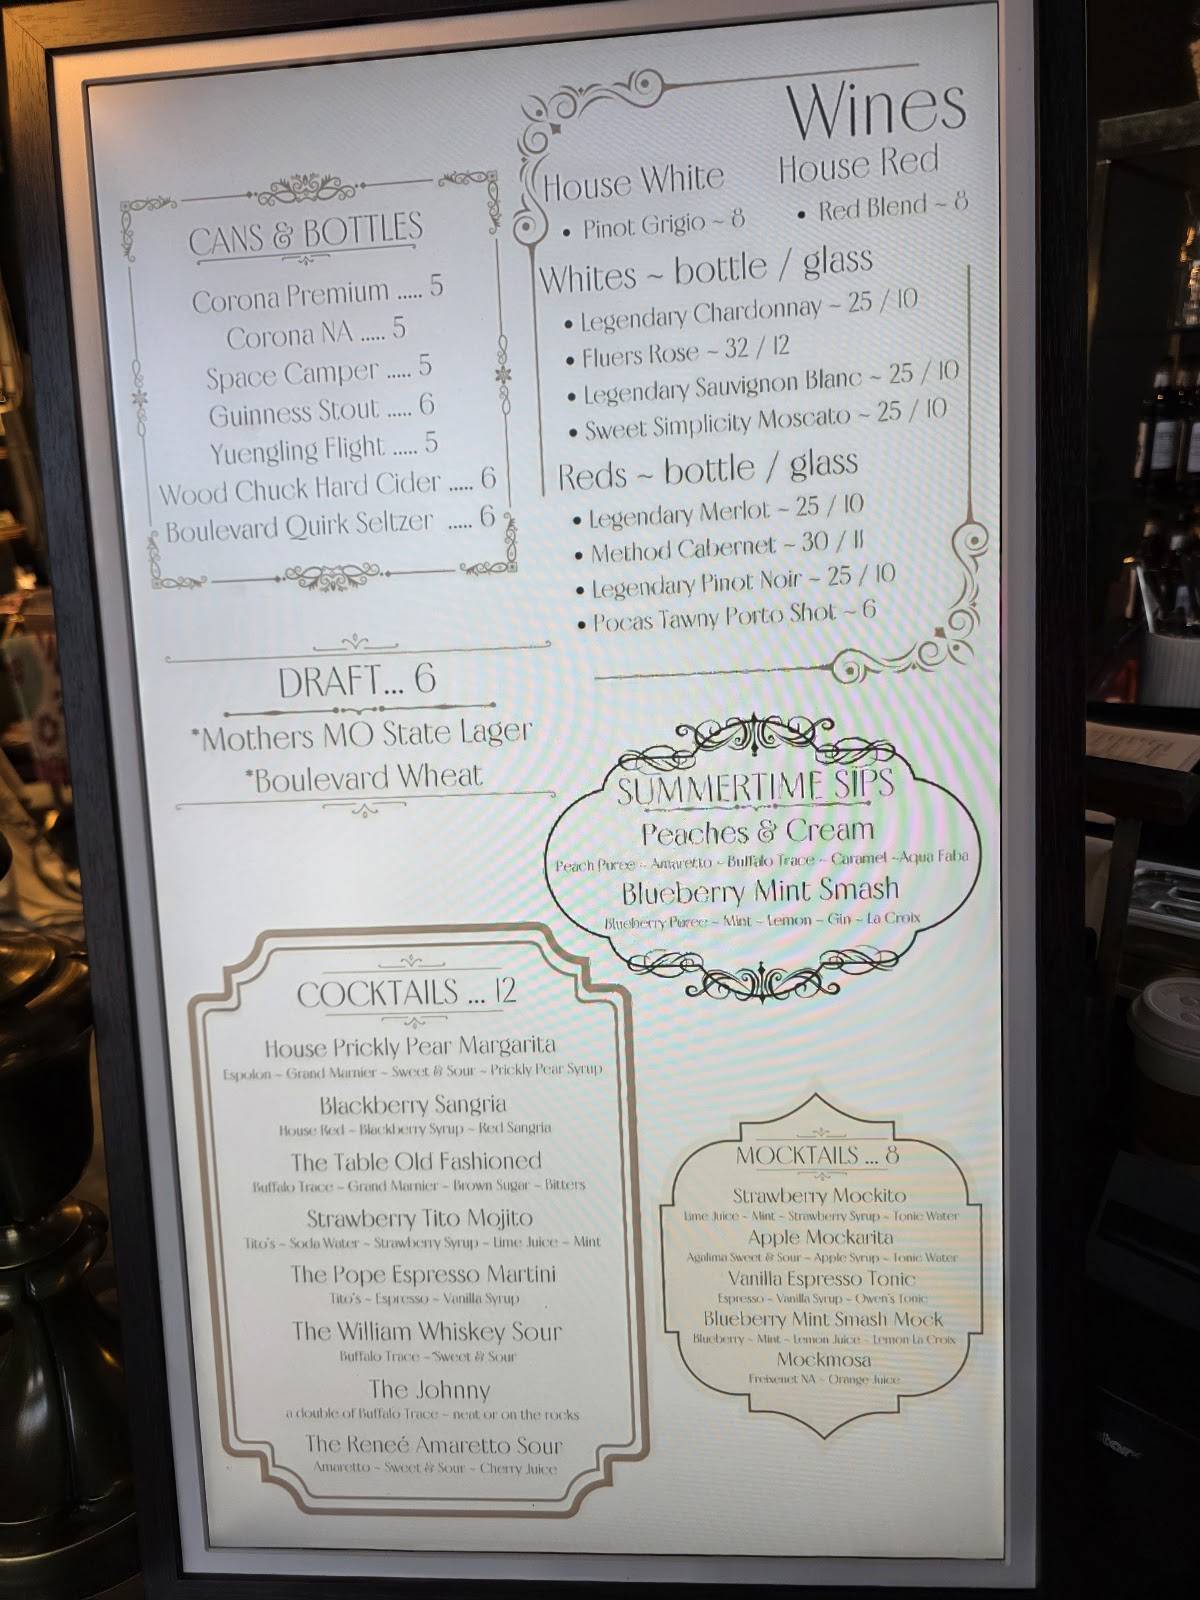 CANS & BOTTLES
Corona Premium ..... 5
Corona NA ..... 5
Space Camper ..... 5
Guinness Stout ..... 6
Yuengling Flight ..... 5
Wood Chuck Hard Cider ..... 6
Boulevard Quirk Seltzer ..... 6
DRAFT... 6
*Mothers MO State Lager
*Boulevard Wheat
Wines
House White
• Pinot Grigio ~ 8
House Red
• Red Blend ~ 8
Whites ~ bottle / glass
• Legendary Chardonnay ~ 25 / 10
• Fluers Rose ~ 32 / 12
• Legendary Sauvignon Blanc ~ 25 / 10
• Sweet Simplicity Moscato ~ 25 / 10
Reds ~ bottle / glass
• Legendary Merlot ~ 25 / 10
• Method Cabernet ~ 30 / 11
• Legendary Pinot Noir ~ 25 / 10
• Pocas Tawny Porto Shot ~ 6
SUMMERTIME SIPS
Peaches & Cream
Peach Puree ~ Amaretto ~ Buffalo Trace ~ Caramel ~Aqua Faba
Blueberry Mint Smash
Blueberry Puree ~ Mint ~ Lemon ~ Gin ~ La Croix
COCKTAILS ... 12
House Prickly Pear Margarita
Espolon ~ Grand Marnier ~ Sweet & Sour ~ Prickly Pear Syrup
Blackberry Sangria
House Red ~ Blackberry Syrup ~ Red Sangria
The Table Old Fashioned
Buffalo Trace ~ Grand Marnier ~ Brown Sugar ~ Bitters
Strawberry Tito Mojito
Tito's ~ Soda Water ~ Strawberry Syrup ~ Lime Juice ~ Mint
The Pope Espresso Martini
Tito's ~ Espresso ~ Vanilla Syrup
The William Whiskey Sour
Buffalo Trace ~ Sweet & Sour
The Johnny
a double of Buffalo Trace ~ neat or on the rocks
The Reneé Amaretto Sour
Amaretto ~ Sweet & Sour ~ Cherry Juice
MOCKTAILS ... 8
Strawberry Mockito
Lime Juice ~ Mint ~ Strawberry Syrup ~ Tonic Water
Apple Mockarita
Agalima Sweet & Sour ~ Apple Syrup ~ Tonic Water
Vanilla Espresso Tonic
Espresso ~ Vanilla Syrup ~ Owen's Tonic
Blueberry Mint Smash Mock
Blueberry ~ Mint ~ Lemon Juice ~ Lemon La Croix
Mockmosa
Freixenet NA ~ Orange Juice